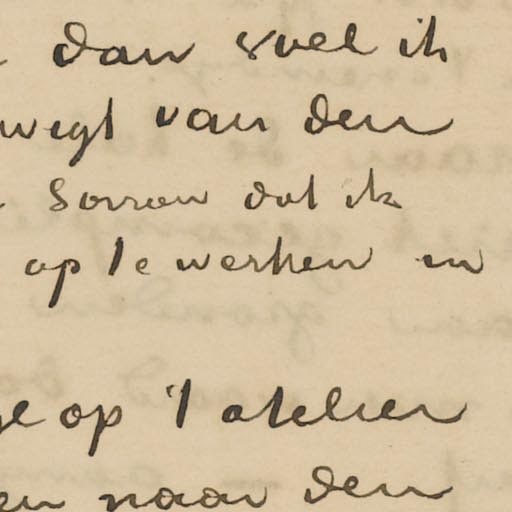 dan voel ik
wegt van den
Sorrow dat ik
op te werken en
op 't atelier
en naar den